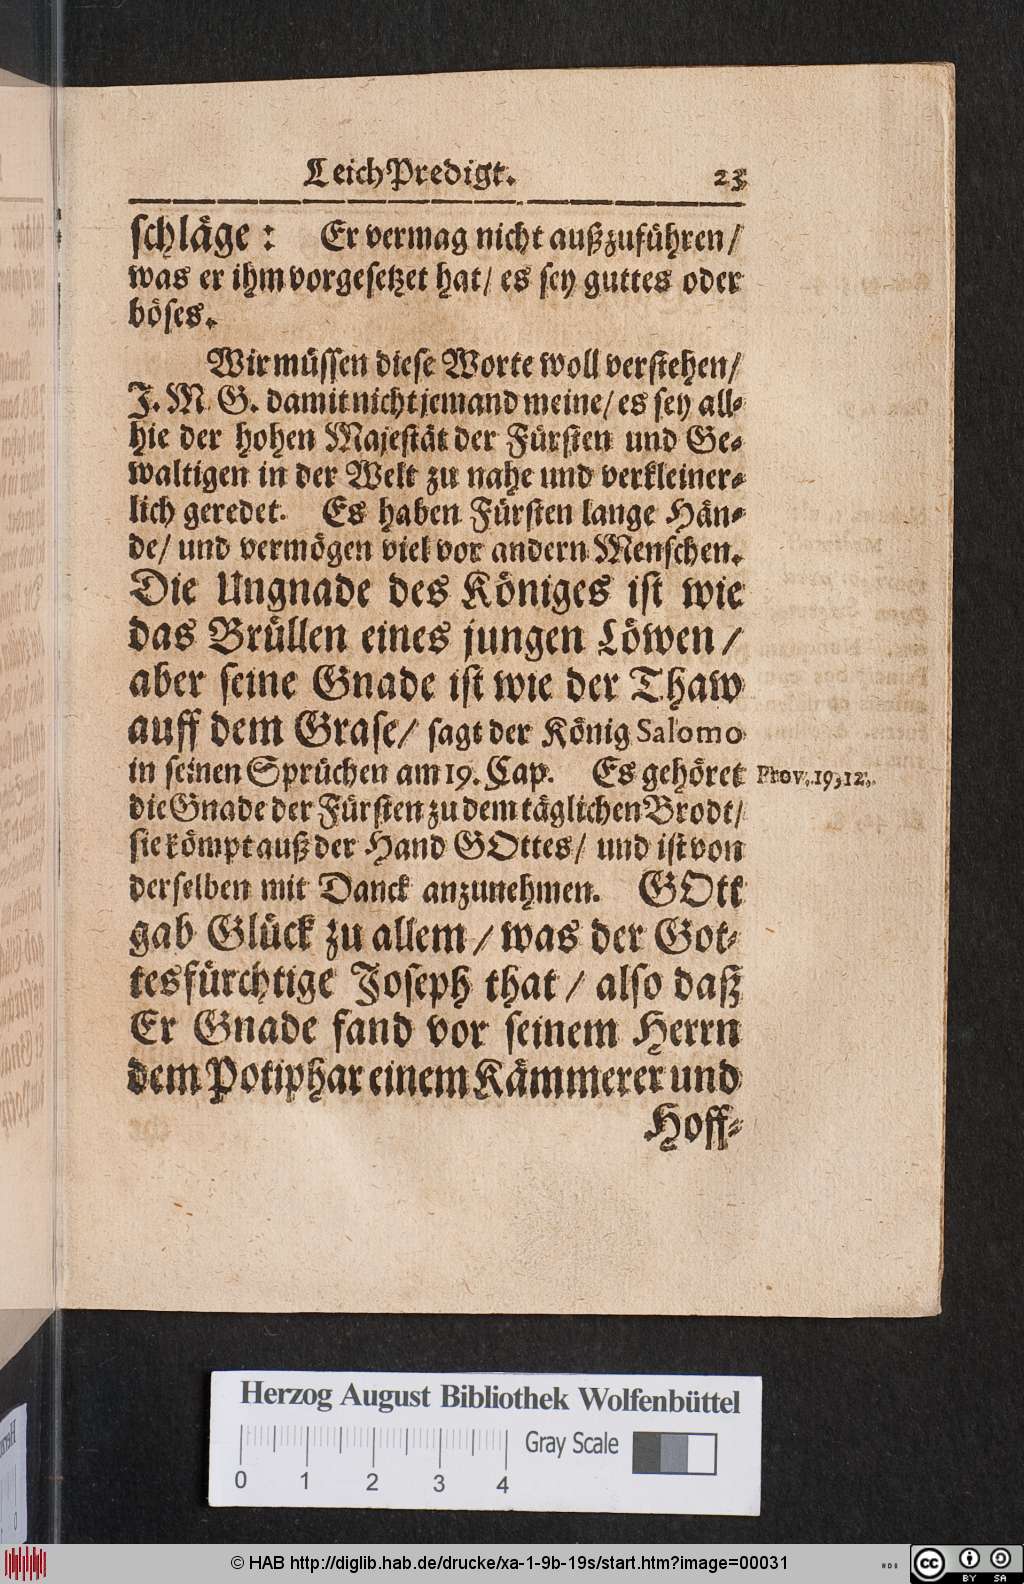 LeichPredigt. 23
schläge: Er vermag nicht außzuführen/
was er ihm vorgesetzet hat/ es sey guttes oder
böses.
Wir müssen diese Worte woll verstehen/
J. M. G. damit nicht jemand meine/ es sey all-
hie der hohen Majestät der Fürsten und Ge-
waltigen in der Welt zu nahe und verkleiner-
lich geredet. Es haben Fürsten lange Hän-
de/ und vermögen viel vor andern Menschen.
Die Ungnade des Königes ist wie
das Brüllen eines jungen Löwen/
aber seine Gnade ist wie der Thaw
auff dem Grase/ sagt der König Salomo
in seinen Sprüchen am 19. Cap. Es gehöret
Prov. 19, 12.
die Gnade der Fürsten zu dem täglichen Brodt/
sie kömpt auß der Hand GOttes/ und ist von
derselben mit Danck anzunehmen. GOtt
gab Glück zu allem/ was der Got-
tesfürchtige Joseph that/ also daß
Er Gnade fand vor seinem Herrn
dem Potiphar einem Kämmerer und
Hoff-
Herzog August Bibliothek Wolfenbüttel
Gray Scale
0 1 2 3 4
© HAB http://diglib.hab.de/drucke/xa-1-9b-19s/start.htm?image=00031
cc BY SA